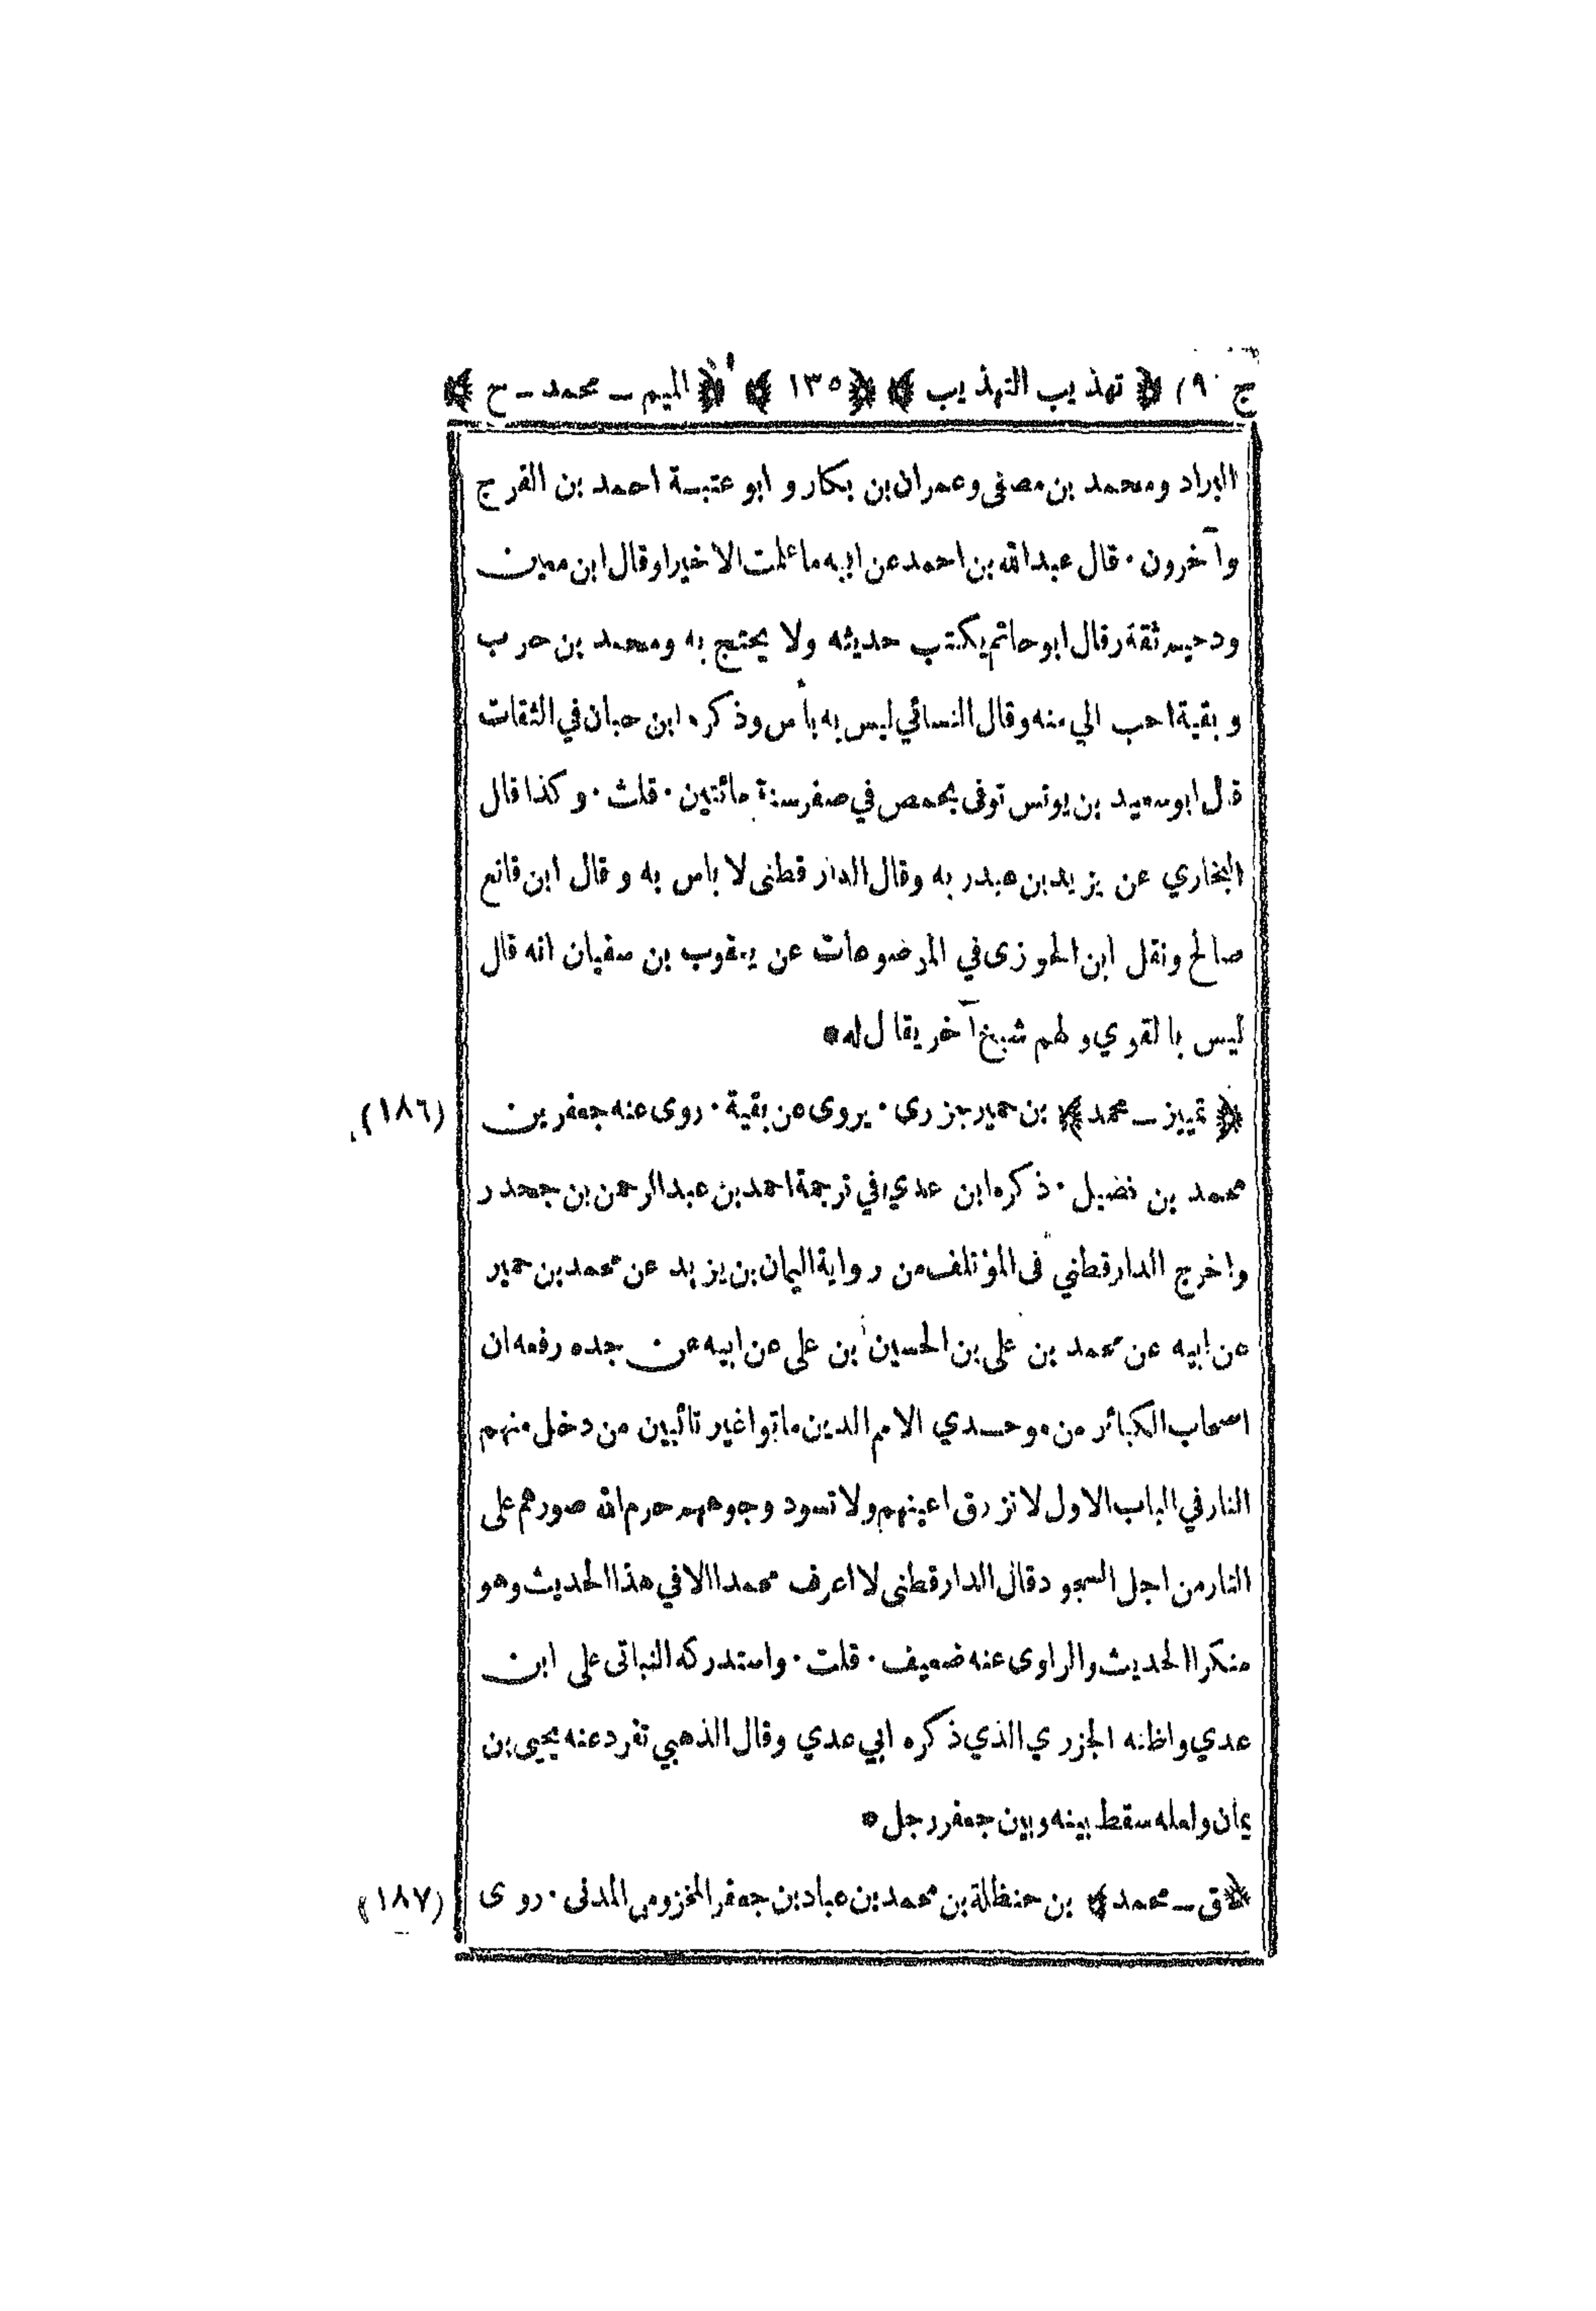 ج ٩ ﴿ تهذيب التهذيب ﴾ ﴿ ١٣٥ ﴾ ﴿ الميم ـ محمد ـ ح ﴾
البراد ومحمد بن مصفى وعمران بن بكار و ابو عتبة احمد بن الفرج
وآخرون · قال عبدالله بن احمد عن ابيه ما علمت الا خيرا وقال ابن معين
ودحيم ثقة وقال ابو حاتم يكتب حديثه ولا يحتج به ومحمد بن حرب
و بقية احب الي منه وقال النسائي ليس به بأس وذكره ابن حبان في الثقات
قال ابو سعيد بن يونس توفى بحمص في صفر سنة مائتين · قلت · و كذا قال
البخاري عن يزيد بن عبدربه وقال الدار قطنى لا باس به و قال ابن قانع
صالح ونقل ابن الجوزى في الموضوعات عن يعقوب بن سفيان انه قال
ليس بالقوي و لهم شيخ آخر يقال له *
﴿ تمييز ـ محمد ﴾ بن حمير جزرى · يروى عن بقية · روى عنه جعفر بن
(١٨٦)
محمد بن فضيل · ذكره ابن عدي في ترجمة احمد بن عبد الرحمن بن جحدر
واخرج الدارقطني فى المؤتلف من رواية اليمان بن يزيد عن محمد بن حمير
عن ابيه عن محمد بن على بن الحسين بن على عن ابيه عن جده رفعه ان
اصحاب الكبائر من موحدي الامم الذين ماتوا غير تائبين من دخل منهم
النار في الباب الاول لا تزرق اعينهم ولا تسود وجوههم حرم الله صورهم على
النار من اجل السجود قال الدارقطنى لا اعرف محمدا الا في هذا الحديث وهو
منكر الحديث والراوى عنه ضعيف · قلت · واستدركه النباتى على ابن
عدي واظنه الجزري الذي ذكره ابي عدي وقال الذهبي تفرد عنه يحيى بن
يمان ولعله سقط بينه وبين جعفر رجل *
﴿ ق ـ محمد ﴾ بن حنظلة بن محمد بن عباد بن جعفر المخزومى المدنى · روى
(١٨٧)